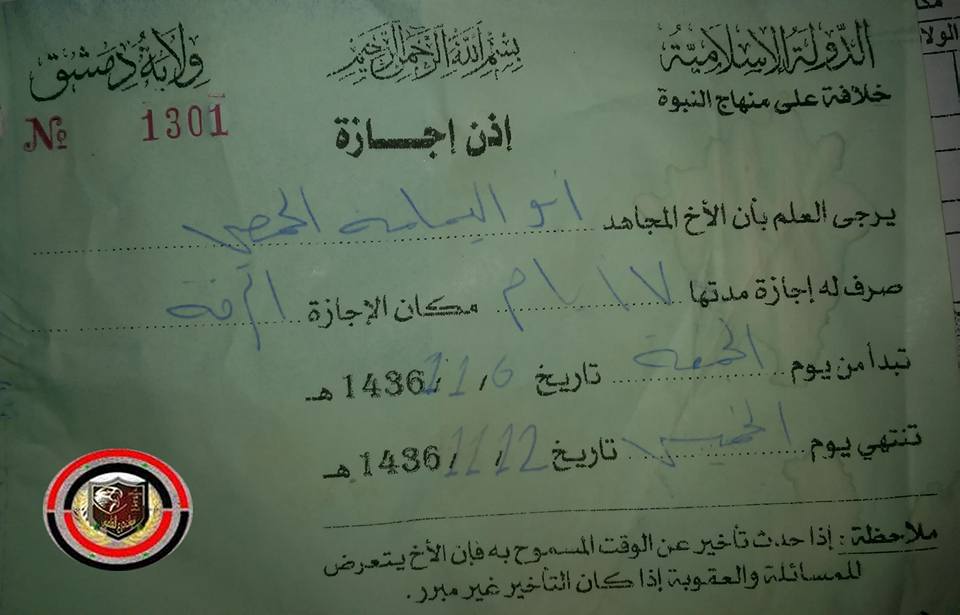 الدولة الإسلامية
خلافة على منهاج النبوة
بسم الله الرحمن الرحيم
ولاية دمشق
№ 1301
إذن إجازة
يرجى العلم بأن الأخ المجاهد أبو اليمامة الحمصي
صرف له إجازة مدتها ٧ أيام مكان الإجازة الرقة
تبدأ من يوم الجمعة تاريخ 6 / 11 / 1436 هـ
تنتهي يوم الخميس تاريخ 12 / 11 / 1436 هـ
ملاحظة : إذا حدث تأخير عن الوقت المسموح به فإن الأخ يتعرض
للمسائلة والعقوبة إذا كان التأخير غير مبرر .
الولا